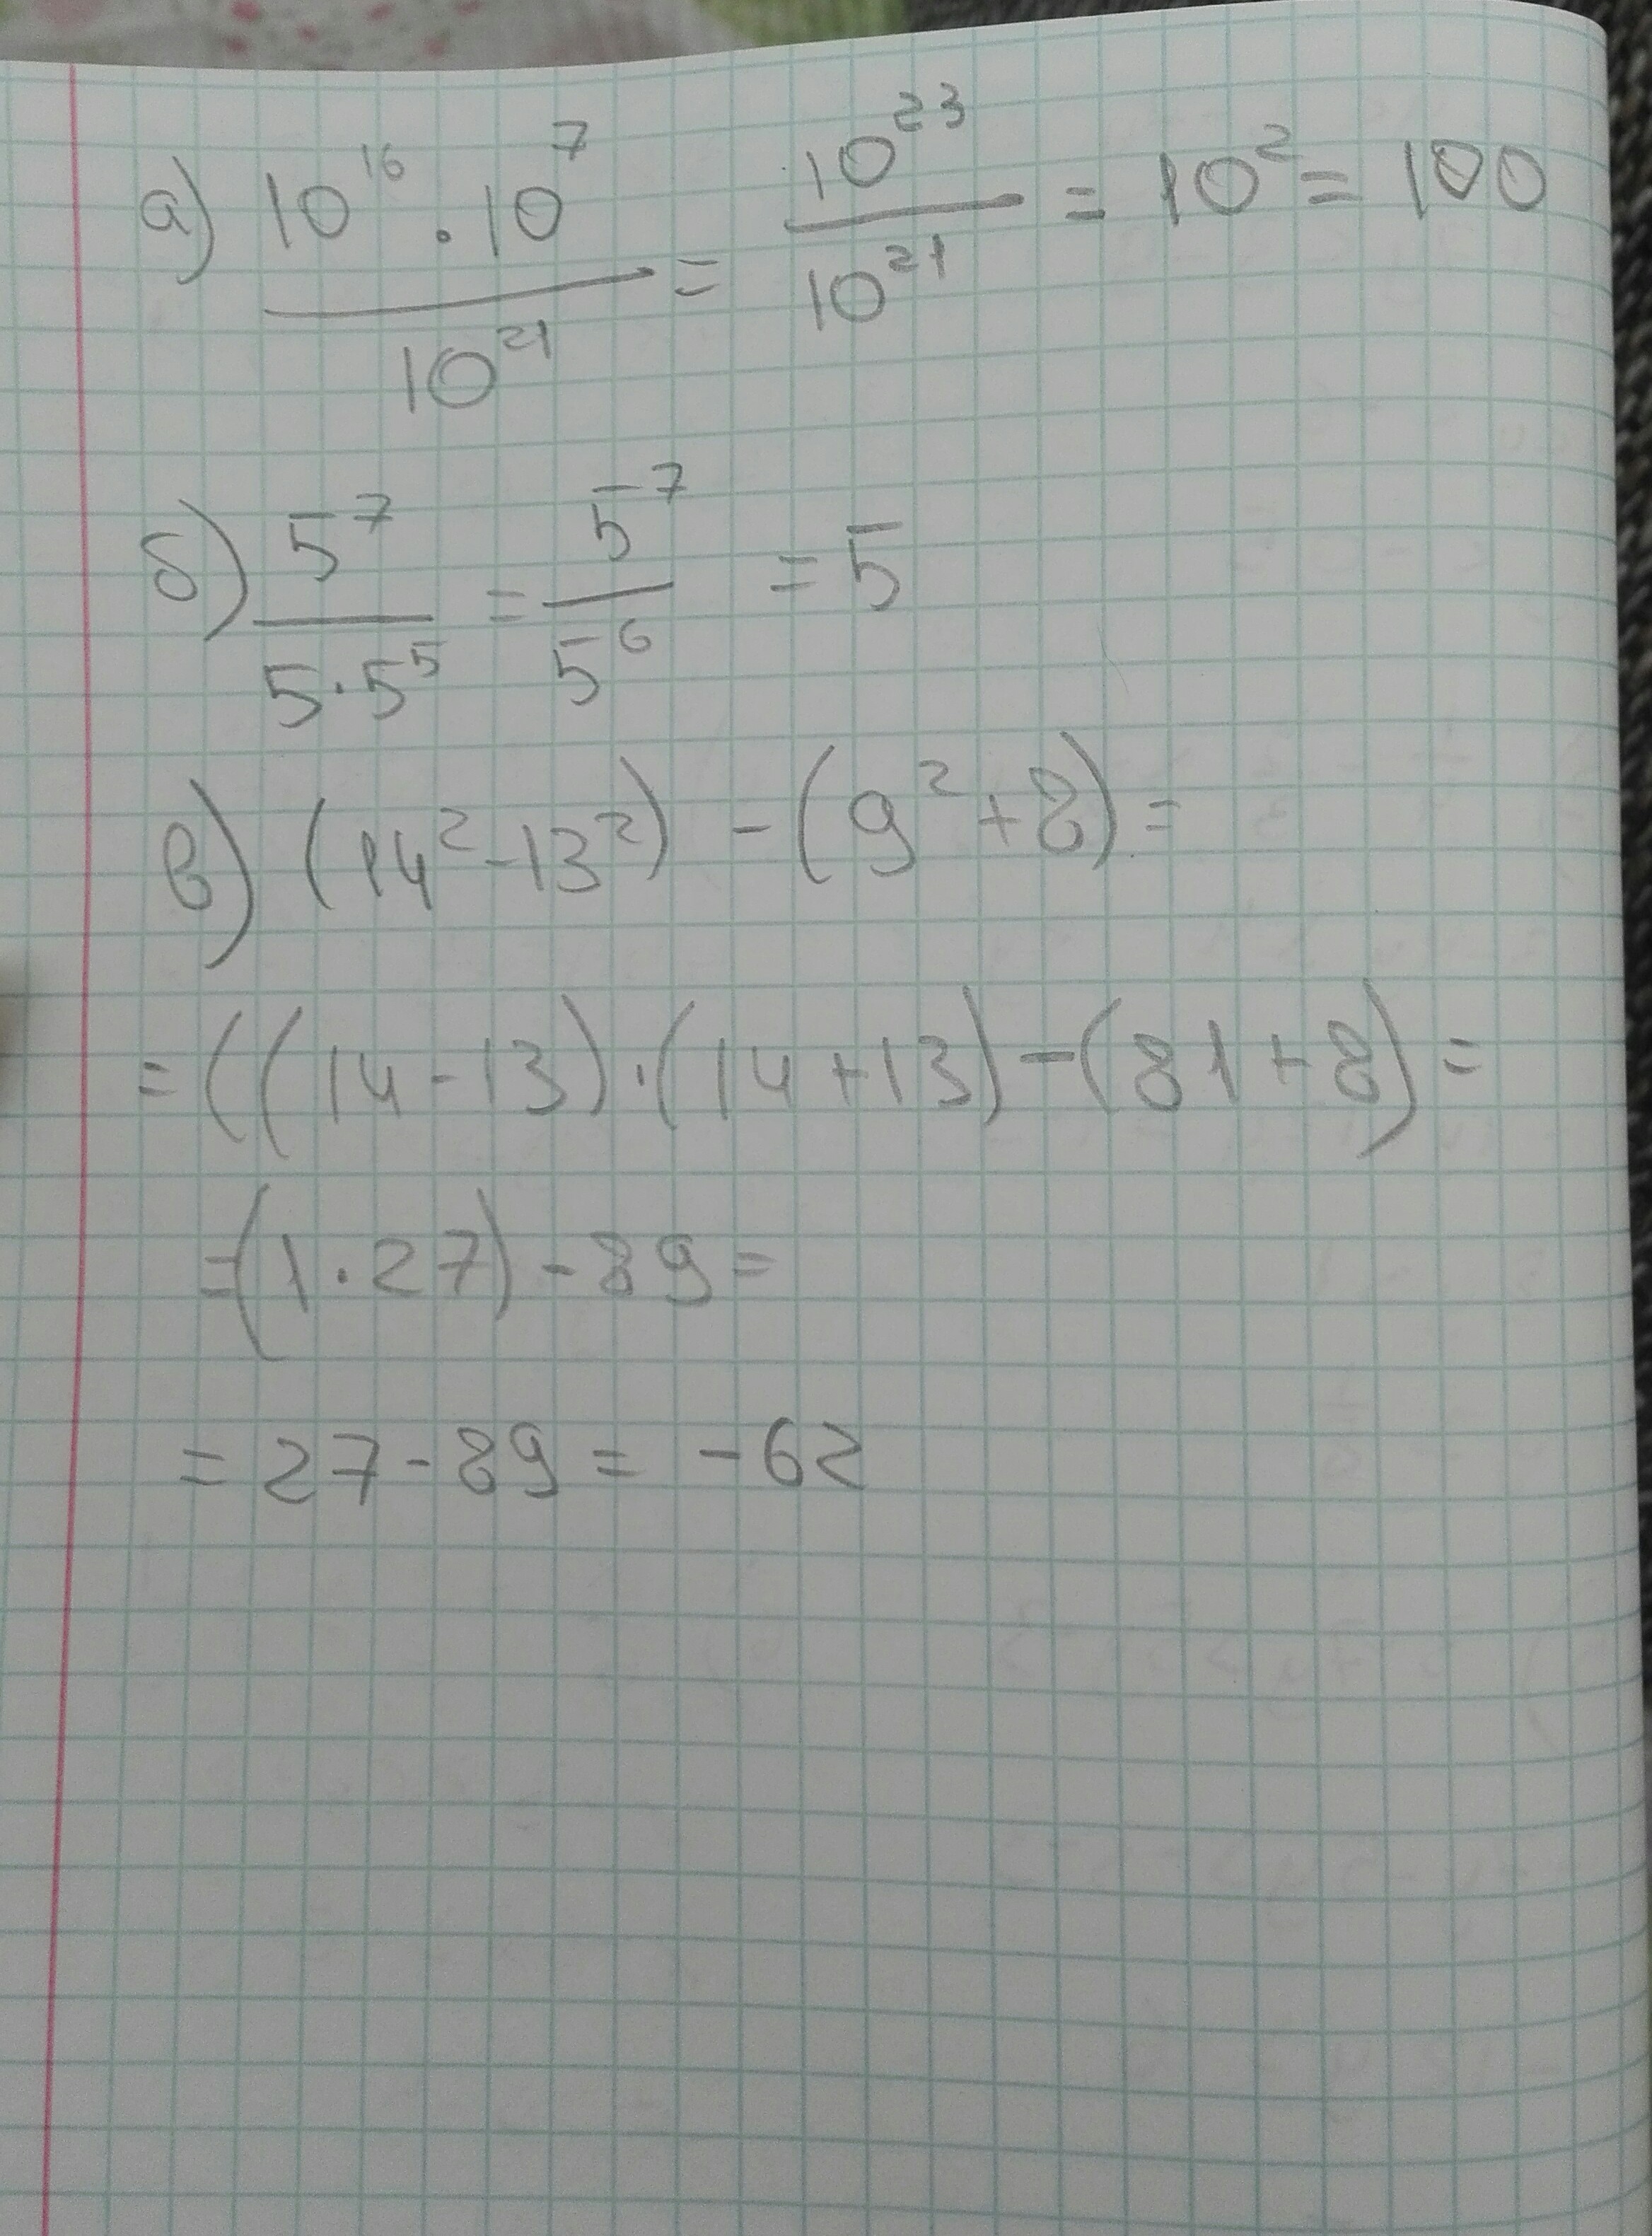 а) (10¹⁶ · 10⁷)/10²¹ = 10²³/10²¹ = 10² = 100
б) 5⁷/(5·5⁵) = 5⁷/5⁶ = 5
в) (14² - 13²) - (9² + 8) =
= ((14 - 13) · (14 + 13) - (81 + 8) =
= (1 · 27) - 89 =
= 27 - 89 = -62